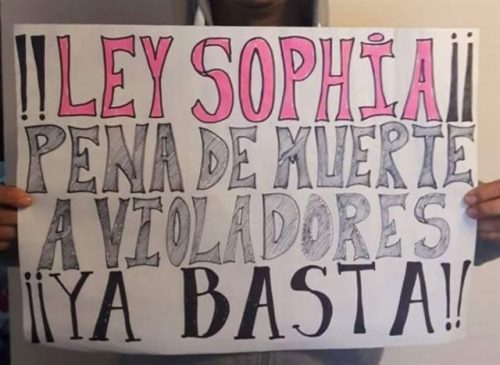 !!LEY SOPHIA¡¡
PENA DE MUERTE
A VIOLADORES
¡¡YA BASTA!!